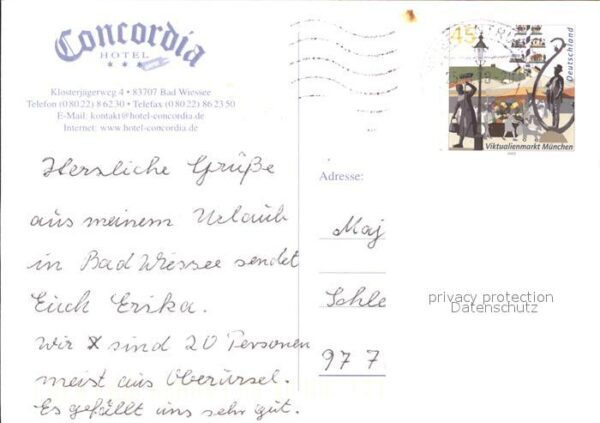 Concordia
HOTEL
Klosterjägerweg 4 • 83707 Bad Wiessee
Telefon (0 80 22) 8 62 30 • Telefax (0 80 22) 86 23 50
E-Mail: kontakt@hotel-concordia.de
Internet: www.hotel-concordia.de
Herzliche Grüße
aus meinem Urlaub
in Bad Wiessee sendet
Euch Erika.
Wir sind 20 Personen
meist aus Oberursel.
Es gefällt uns sehr gut.
45
Deutschland
Viktualienmarkt München
Adresse:
Maj
Schle
97 7
privacy protection
Datenschutz